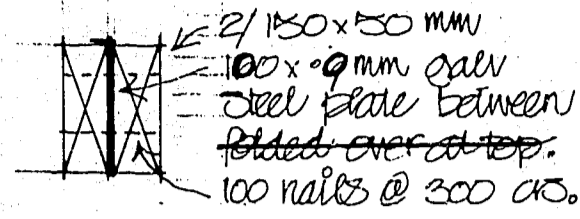 2/150x50 mm
100x.9mm galv
Steel plate between
folded over at top.
100 nails @ 300 crs.